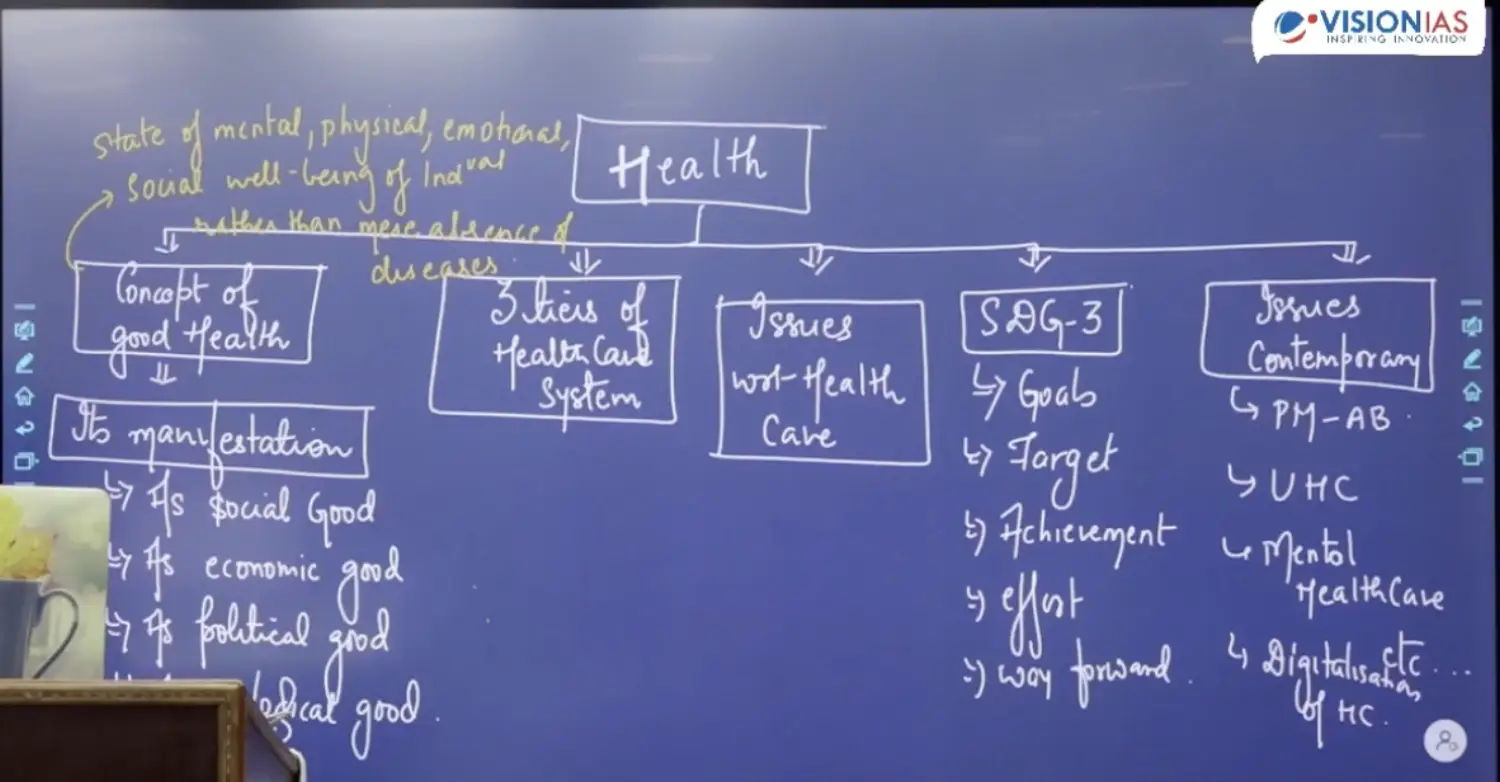 VISIONIAS
INSPIRING INNOVATION
Health
State of mental, physical, emotional,
social well-being of Indval
rather than mere absence of
diseases.
Concept of
good Health
Its manifestation
As Social Good
As economic good
As political good
good.
3 tiers of
HealthCare
System
Issues
wrt-Health
Care
SDG-3
Goals
Target
Achievement
effort
way forward.
Issues
Contemporary
PM-AB.
UHC
Mental
HealthCare
Digitalisation etc...
of HC.